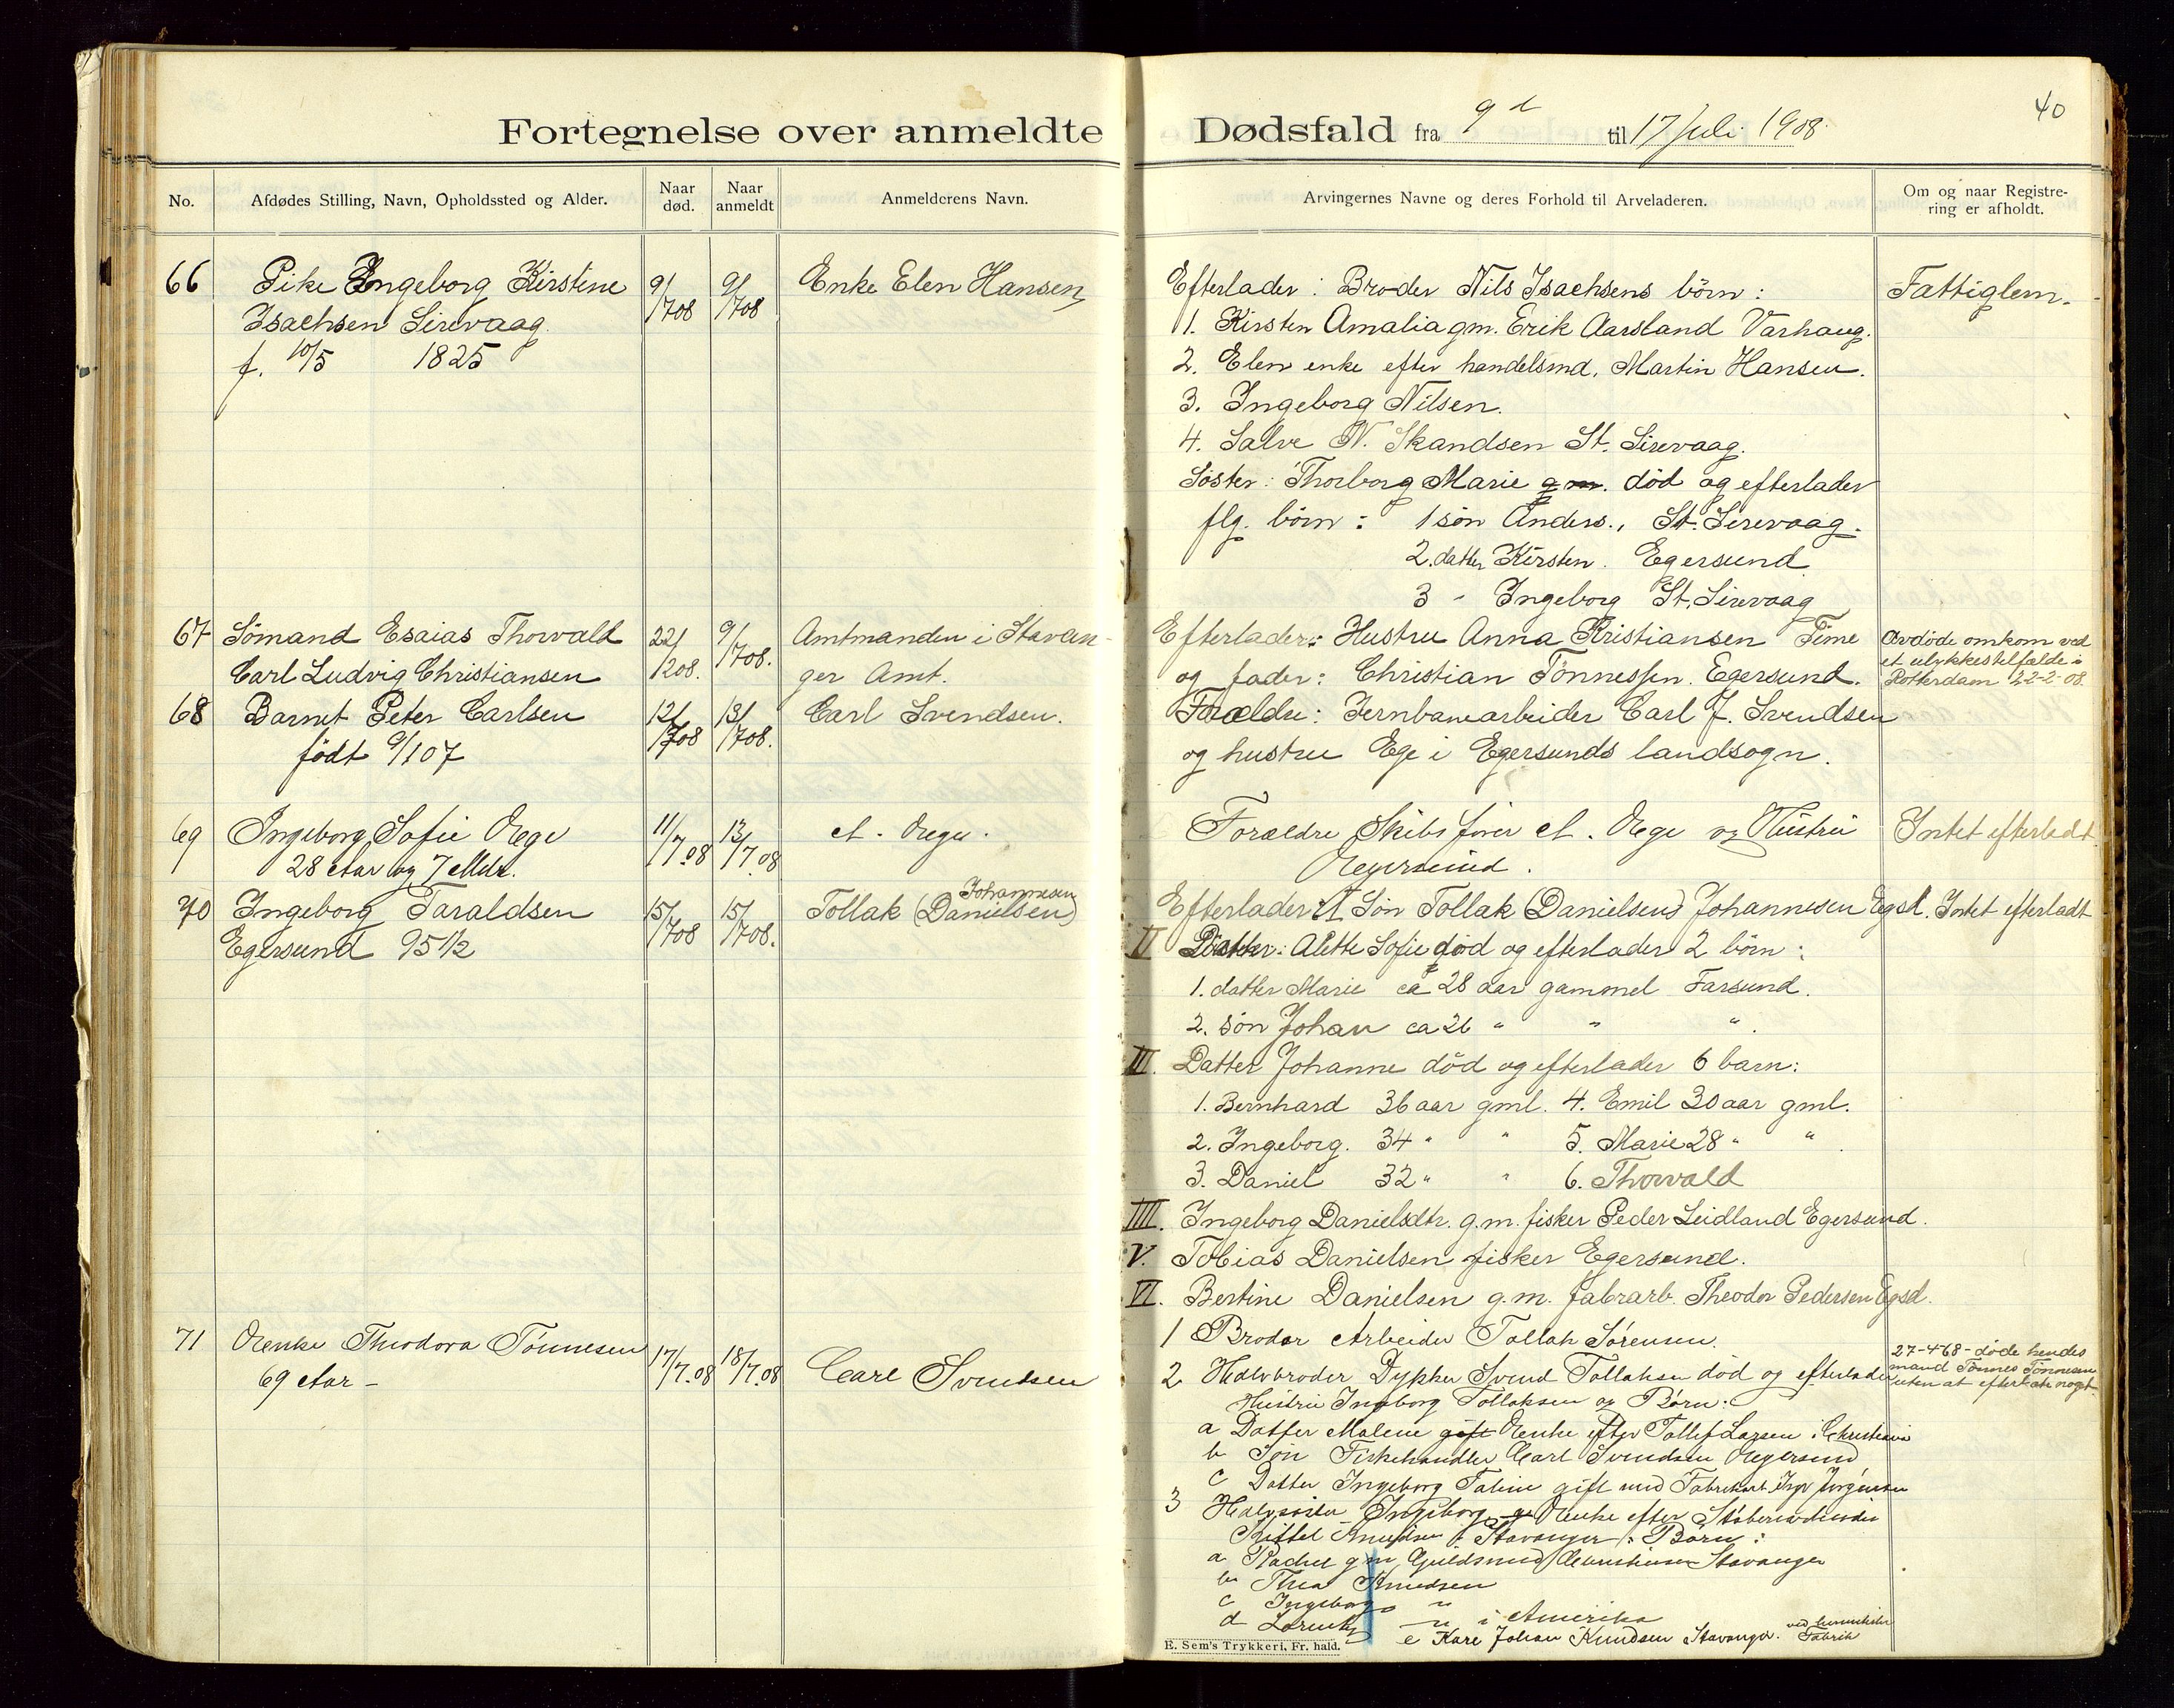 40
Fortegnelse over anmeldte Dødsfald fra 9d til 17 Juli 1908.
No.
Afdødes Stilling, Navn, Opholdssted og Alder.
Naar død.
Naar anmeldt
Anmelderens Navn.
Arvingernes Navne og deres Forhold til Arveladeren.
Om og naar Registrering er afholdt.
66 Pike Ingeborg Kirstine 9/708 9/708 Enke Elen Hansen
Isachsen Sirevaag
f. 10/5 1825
Efterlader: Broder Nils Isachsens börn: Fattiglem.
1. Kirsten Amalia gm. Erik Aarsland Varhaug.
2. Elen enke efter handelsmd. Martin Hansen.
3. Ingeborg Nilsen.
4. Salve N. Skandsen St. Sirevaag.
Söster: Thorborg Marie gm. död og efterlader
flg. börn: 1 sön Anders., St. Sirevaag.
2. datter Kirsten. Egersund
3 - Ingeborg St. Sirevaag
67 Sömand Esaias Thorvald 22/208. 9/708. Amtmanden i Stavan-
Carl Ludvig Christiansen ger Amt.
Efterlader: Hustru Anna Kristiansen Time
og fader: Christian Tönnessen. Egersund.
Avdöde omkom ved
et ulykkestilfælde i
Rotterdam 22-2-08.
68 Barnet Peter Carlsen 12/708 13/708. Carl Svendsen.
födt 9/107
Forældre: Jernbanearbeider Carl J. Svendsen
og hustru Ege i Egersunds landsogn.
69 Ingeborg Sofie Aege 11/7.08 13/7.08 A. Aege.
28 Aar og 7 Mdr.
Forældre Skibsfører A. Aege og Hustru Intet efterladt.
Aegersund.
70 Ingeborg Taraldsen 15/708 15/708. Tollak (Danielsen) Johannesen
Egersund 95 1/2
Efterlader: I Sön Tollak (Danielsen) Johannesen Egsd. Intet efterladt
II Datter: Alette Sofie död og efterlader 2 börn:
1. datter Marie ca 28 aar gammel Farsund.
2. sön Johan ca 26 " " ".
III. Datter Johanne död og efterlader 6 barn:
1. Bernhard 36 aar gml. 4. Emil 30 aar gml.
2. Ingeborg. 34 " " 5. Marie 28 " ".
3. Daniel 32 " " 6. Thorvald
IIII. Ingeborg Danielsdtr. g.m. fisker Peder Leidland Egersund.
V. Tobias Danielsen fisker Egersund.
VI. Bertine Danielsen g.m. fabrarb. Theodor Pedersen Egsd.
71 Aenke Theodora Tønnesen 17/7.08 18/7.08 Carl Svendsen
69 Aar -
1 Broder Arbeider Tollak Sørensen.
2 Halvbroder Dykker Svend Tollaksen död og efterlader
Hustru Ingeborg Tollaksen og Børn:
a Datter Malene gift Aenke efter Tollef Larsen i Christiania
b Søn Fiskehandler Carl Svendsen Aegersund
c Datter Ingeborg Taline gift med Fabrikarb. Jørgensen
3 Halvsøster Ingeborg Aenke efter Støberiarbeider
Kittel Knudsen i Stavanger: Børn:
a Rachel gm Guldsmed Christensen Stavanger
b Thea Knudsen
c Ingeborg "
d Lorentz " i Amerika
e Kare Johan Knudsen Stavanger. ved hermetik Fabrik
27-4-68- döde hendes
mand Tönnes Tönnesen
uten at efterlate noget.
E. Sem's Trykkeri, Fr. hald.